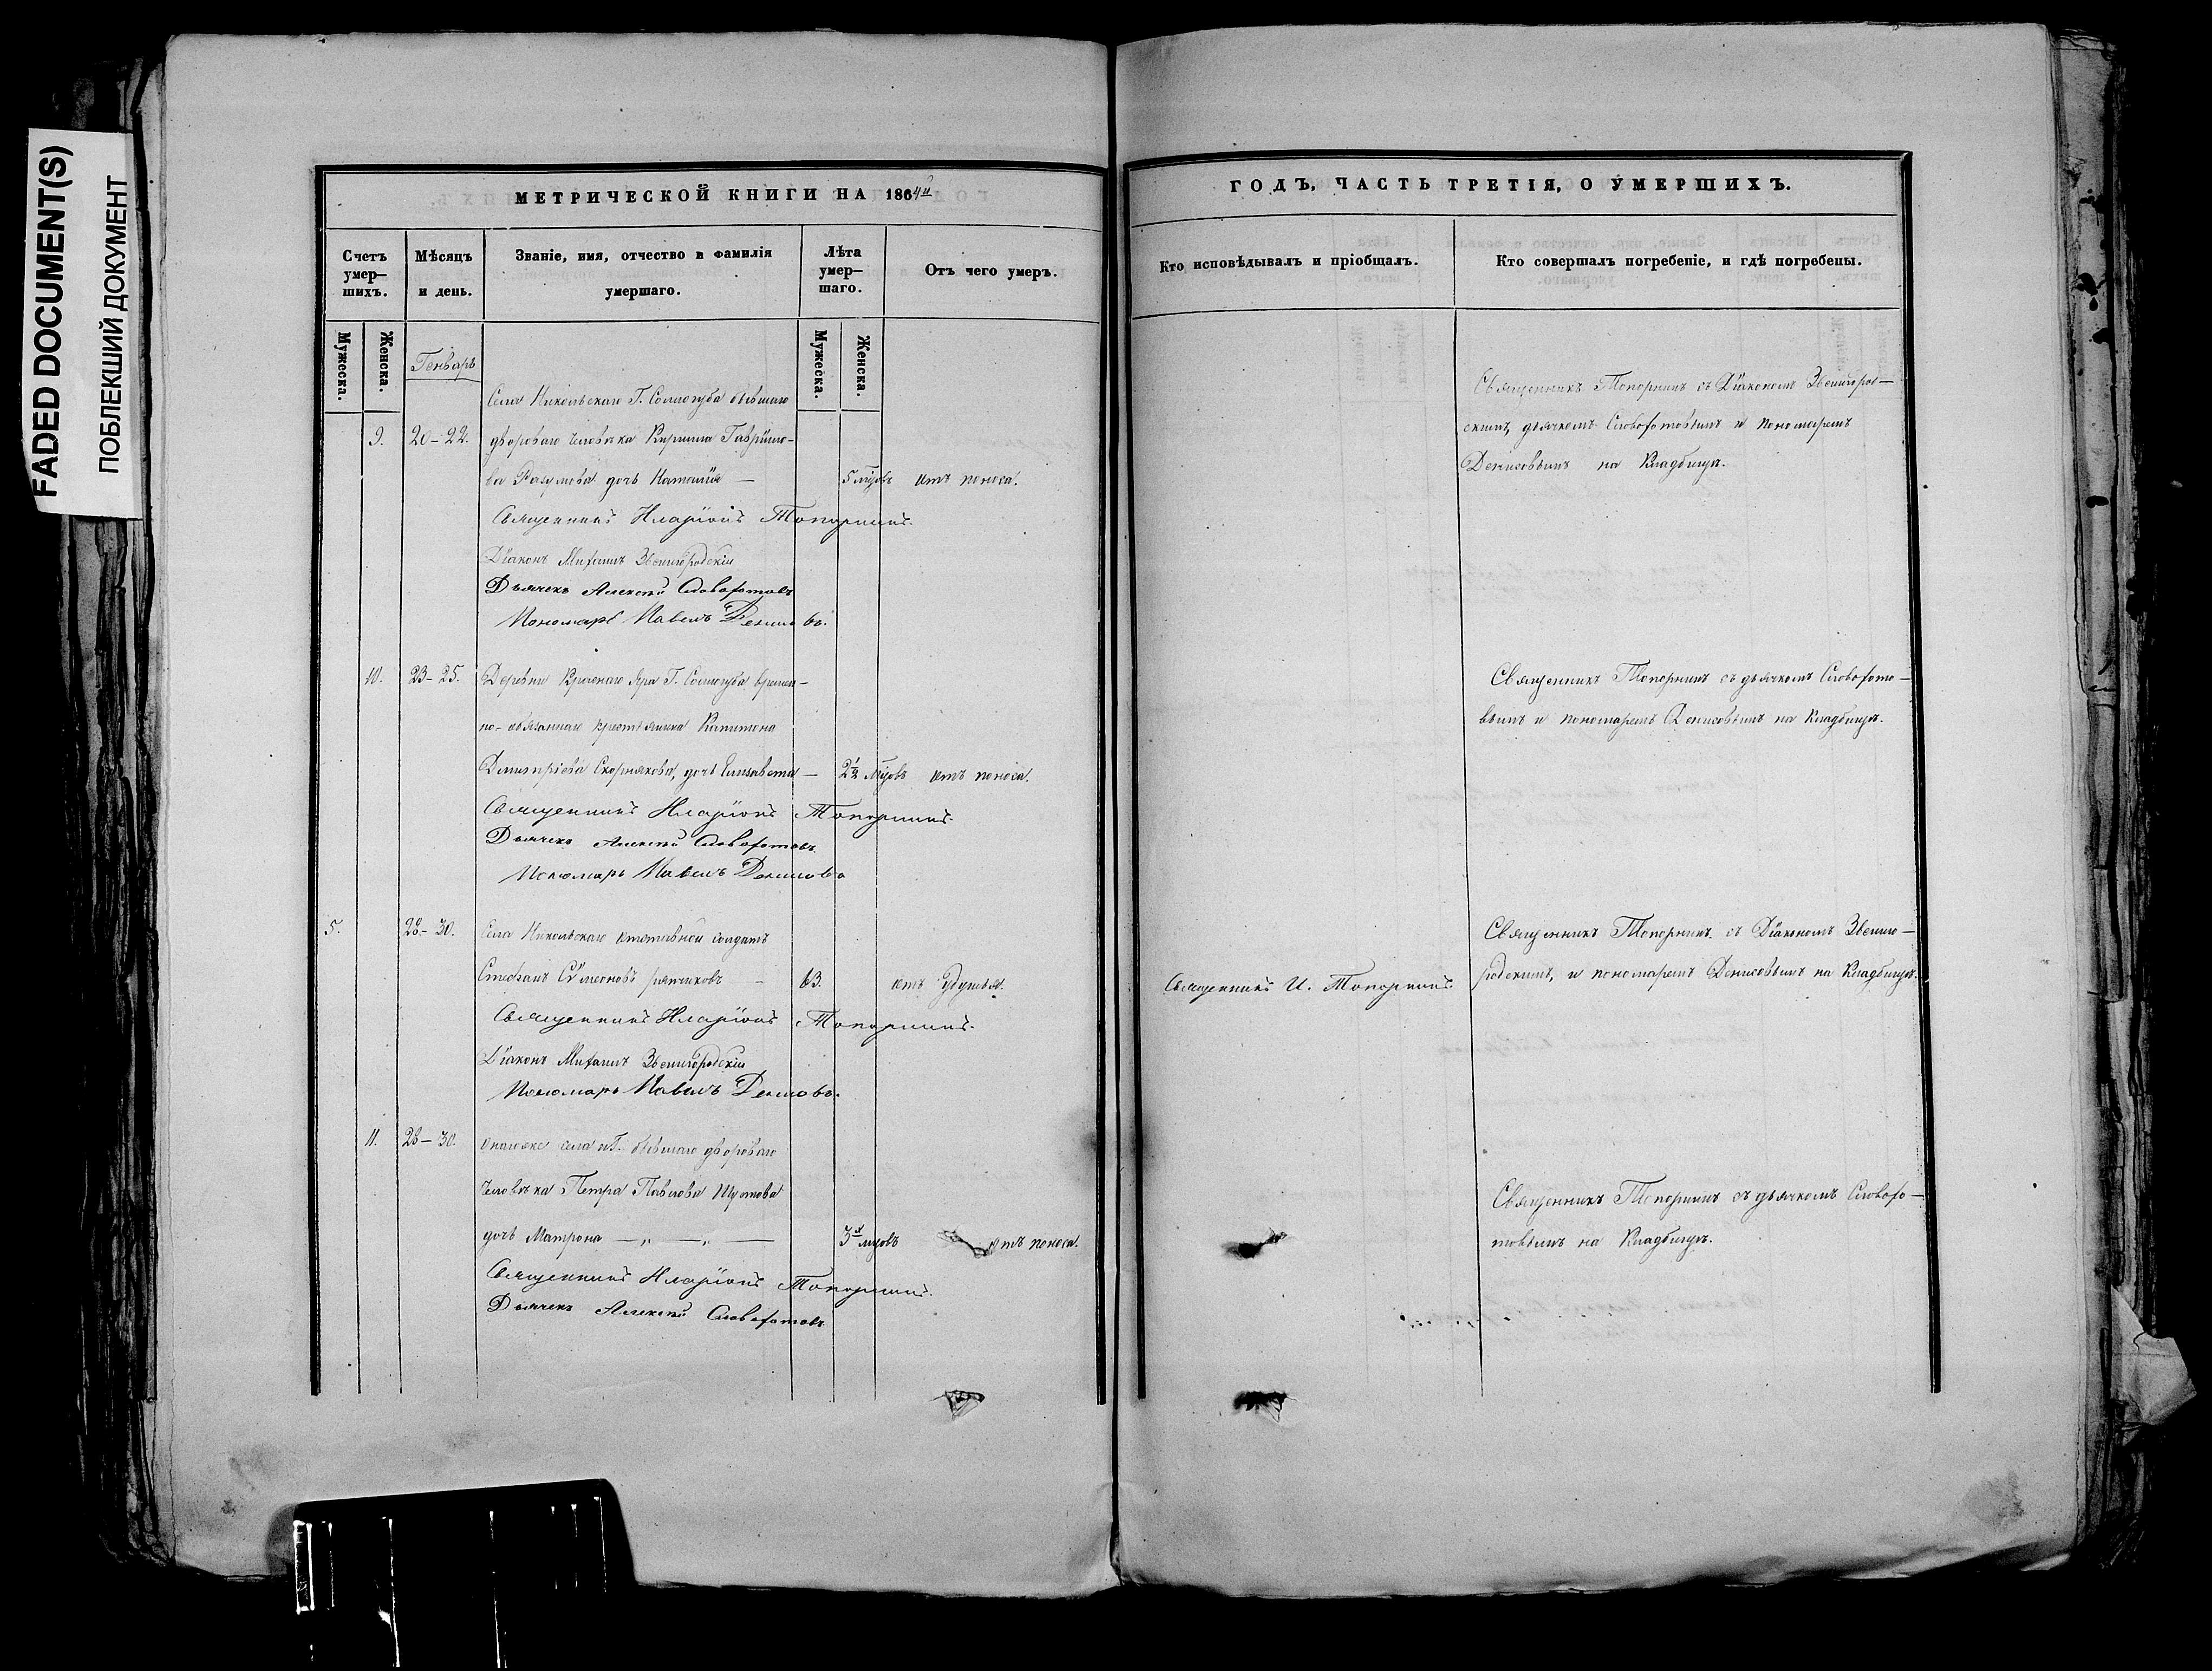 FADED DOCUMENT(S)
ПОБЛЕКШИЙ ДОКУМЕНТ
МЕТРИЧЕСКОЙ КНИГИ НА 1864й
Счетъ умер-шихъ.
Мужеска.
Женска.
Мѣсяцъ и день.
Званіе, имя, отчество и фамилія умершаго.
Лѣта умер-шаго.
Мужеска.
Женска.
Отъ чего умеръ.
Генварь
Села Никольскаго Г. Соллогуба бывшаго
9. 20–22. двороваго человѣка Кирилла Гаврило-
ва Разумова дочь Наталія — 5 мѣсяц. отъ поноса.
Священникъ Иларіонъ Топорнинъ.
Діаконъ Михаилъ Звенигородскій
Дьячекъ Алексѣй Словохотовъ
Пономарь Павелъ Денисовъ.
10. 23–25. Деревни Краснаго Яра Г. Соллогуба времен-
но-обязаннаго крестьянина Капитона
Димитріева Скорнякова, дочь Елисавета — 2½ мѣсяц. отъ поноса.
Священникъ Иларіонъ Топорнинъ.
Дьячекъ Алексѣй Словохотовъ.
Пономарь Павелъ Денисовъ
5. 28–30. Села Никольскаго отставной солдатъ
Стефанъ Сѵмеоновъ — 63. отъ удушья.
Священникъ Иларіонъ Топорнинъ.
Діаконъ Михаилъ Звенигородскій
Пономарь Павелъ Денисовъ.
11. 28–30. Онагоже села и Г. бывшаго двороваго
человѣка Петра Павлова Шутова
дочь Матрона — „ — „ — 3х мѣсяц. отъ поноса.
Священникъ Иларіонъ Топорнинъ.
Дьячекъ Алексѣй Словохотовъ
ГОДЪ, ЧАСТЬ ТРЕТІЯ, О УМЕРШИХЪ.
Кто исповѣдывалъ и пріобщалъ.
Кто совершалъ погребеніе, и гдѣ погребены.
Священникъ Топорнинъ съ Діакономъ Звенигород-
скимъ, дьячкомъ Словохотовымъ и пономаремъ
Денисовымъ на Кладбищѣ.
Священникъ Топорнинъ съ дьячкомъ Словохото-
вымъ и пономаремъ Денисовымъ на Кладбищѣ.
Священникъ И. Топорнинъ.
Священникъ Топорнинъ съ Діакономъ Звениго-
родскимъ, и пономаремъ Денисовымъ на Кладбищѣ.
Священникъ Топорнинъ съ дьячкомъ Словохо-
товымъ на Кладбищѣ.